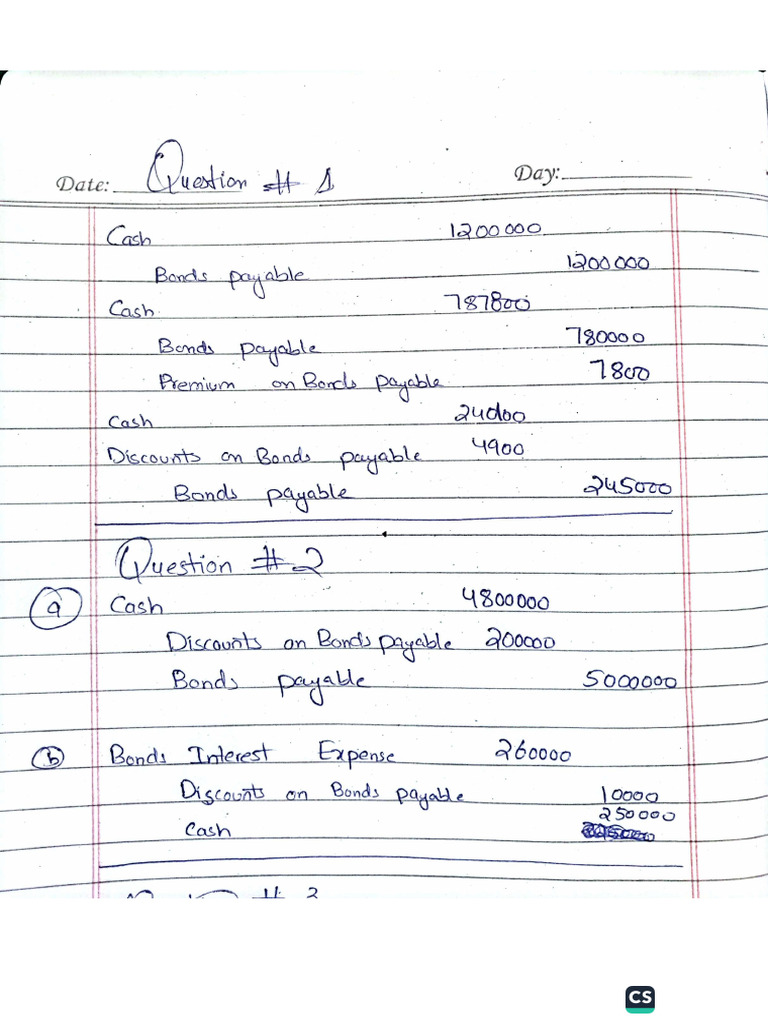 Date: Question # 1 Day:
Cash 1200000
Bonds payable 1200000
Cash 787800
Bonds payable 780000
Premium on Bonds payable 7800
Cash
Discounts on Bonds payable 4900
Bonds payable 245000
Question # 2
a Cash 4800000
Discounts on Bonds payable 200000
Bonds payable 5000000
b Bonds Interest Expense 260000
Discounts on Bonds payable 10000
250000
Cash
# 3
CS